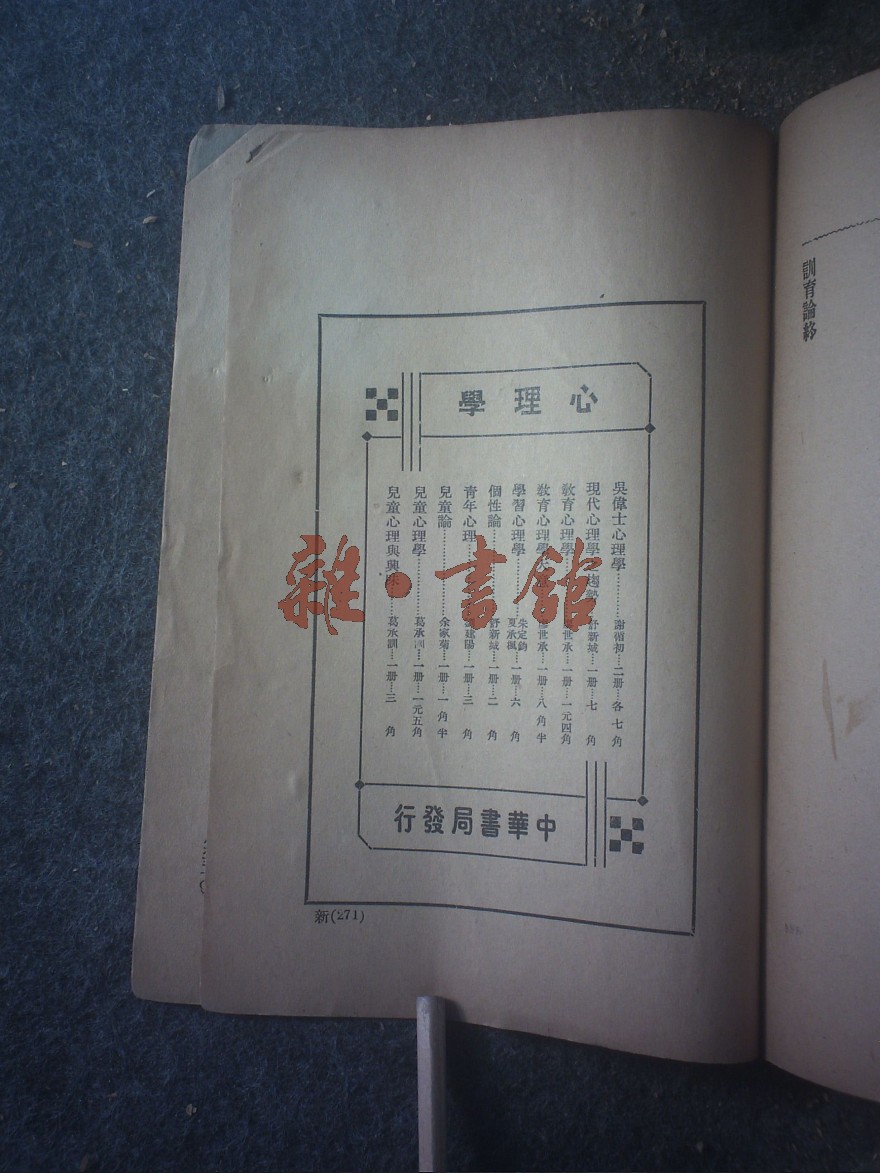 心理學
吳偉士心理學…………謝循初…二册…各七角
現代心理學 趨勢 舒新城…一册…七角
教育心理學 世承…一册…一元四角
教育心理學大 世承…一册…八角半
學習心理學…………朱定鈞 夏承楓…一册…六角
個性論 舒新城…一册…二角
青年心理 建陽…一册…三角
兒童論…………余家菊…一册…一角半
兒童心理學…………葛承訓…一册…一元五角
兒童心理與興味 葛承訓…一册…三角
中華書局發行
新(271)
訓育論
雜·書館